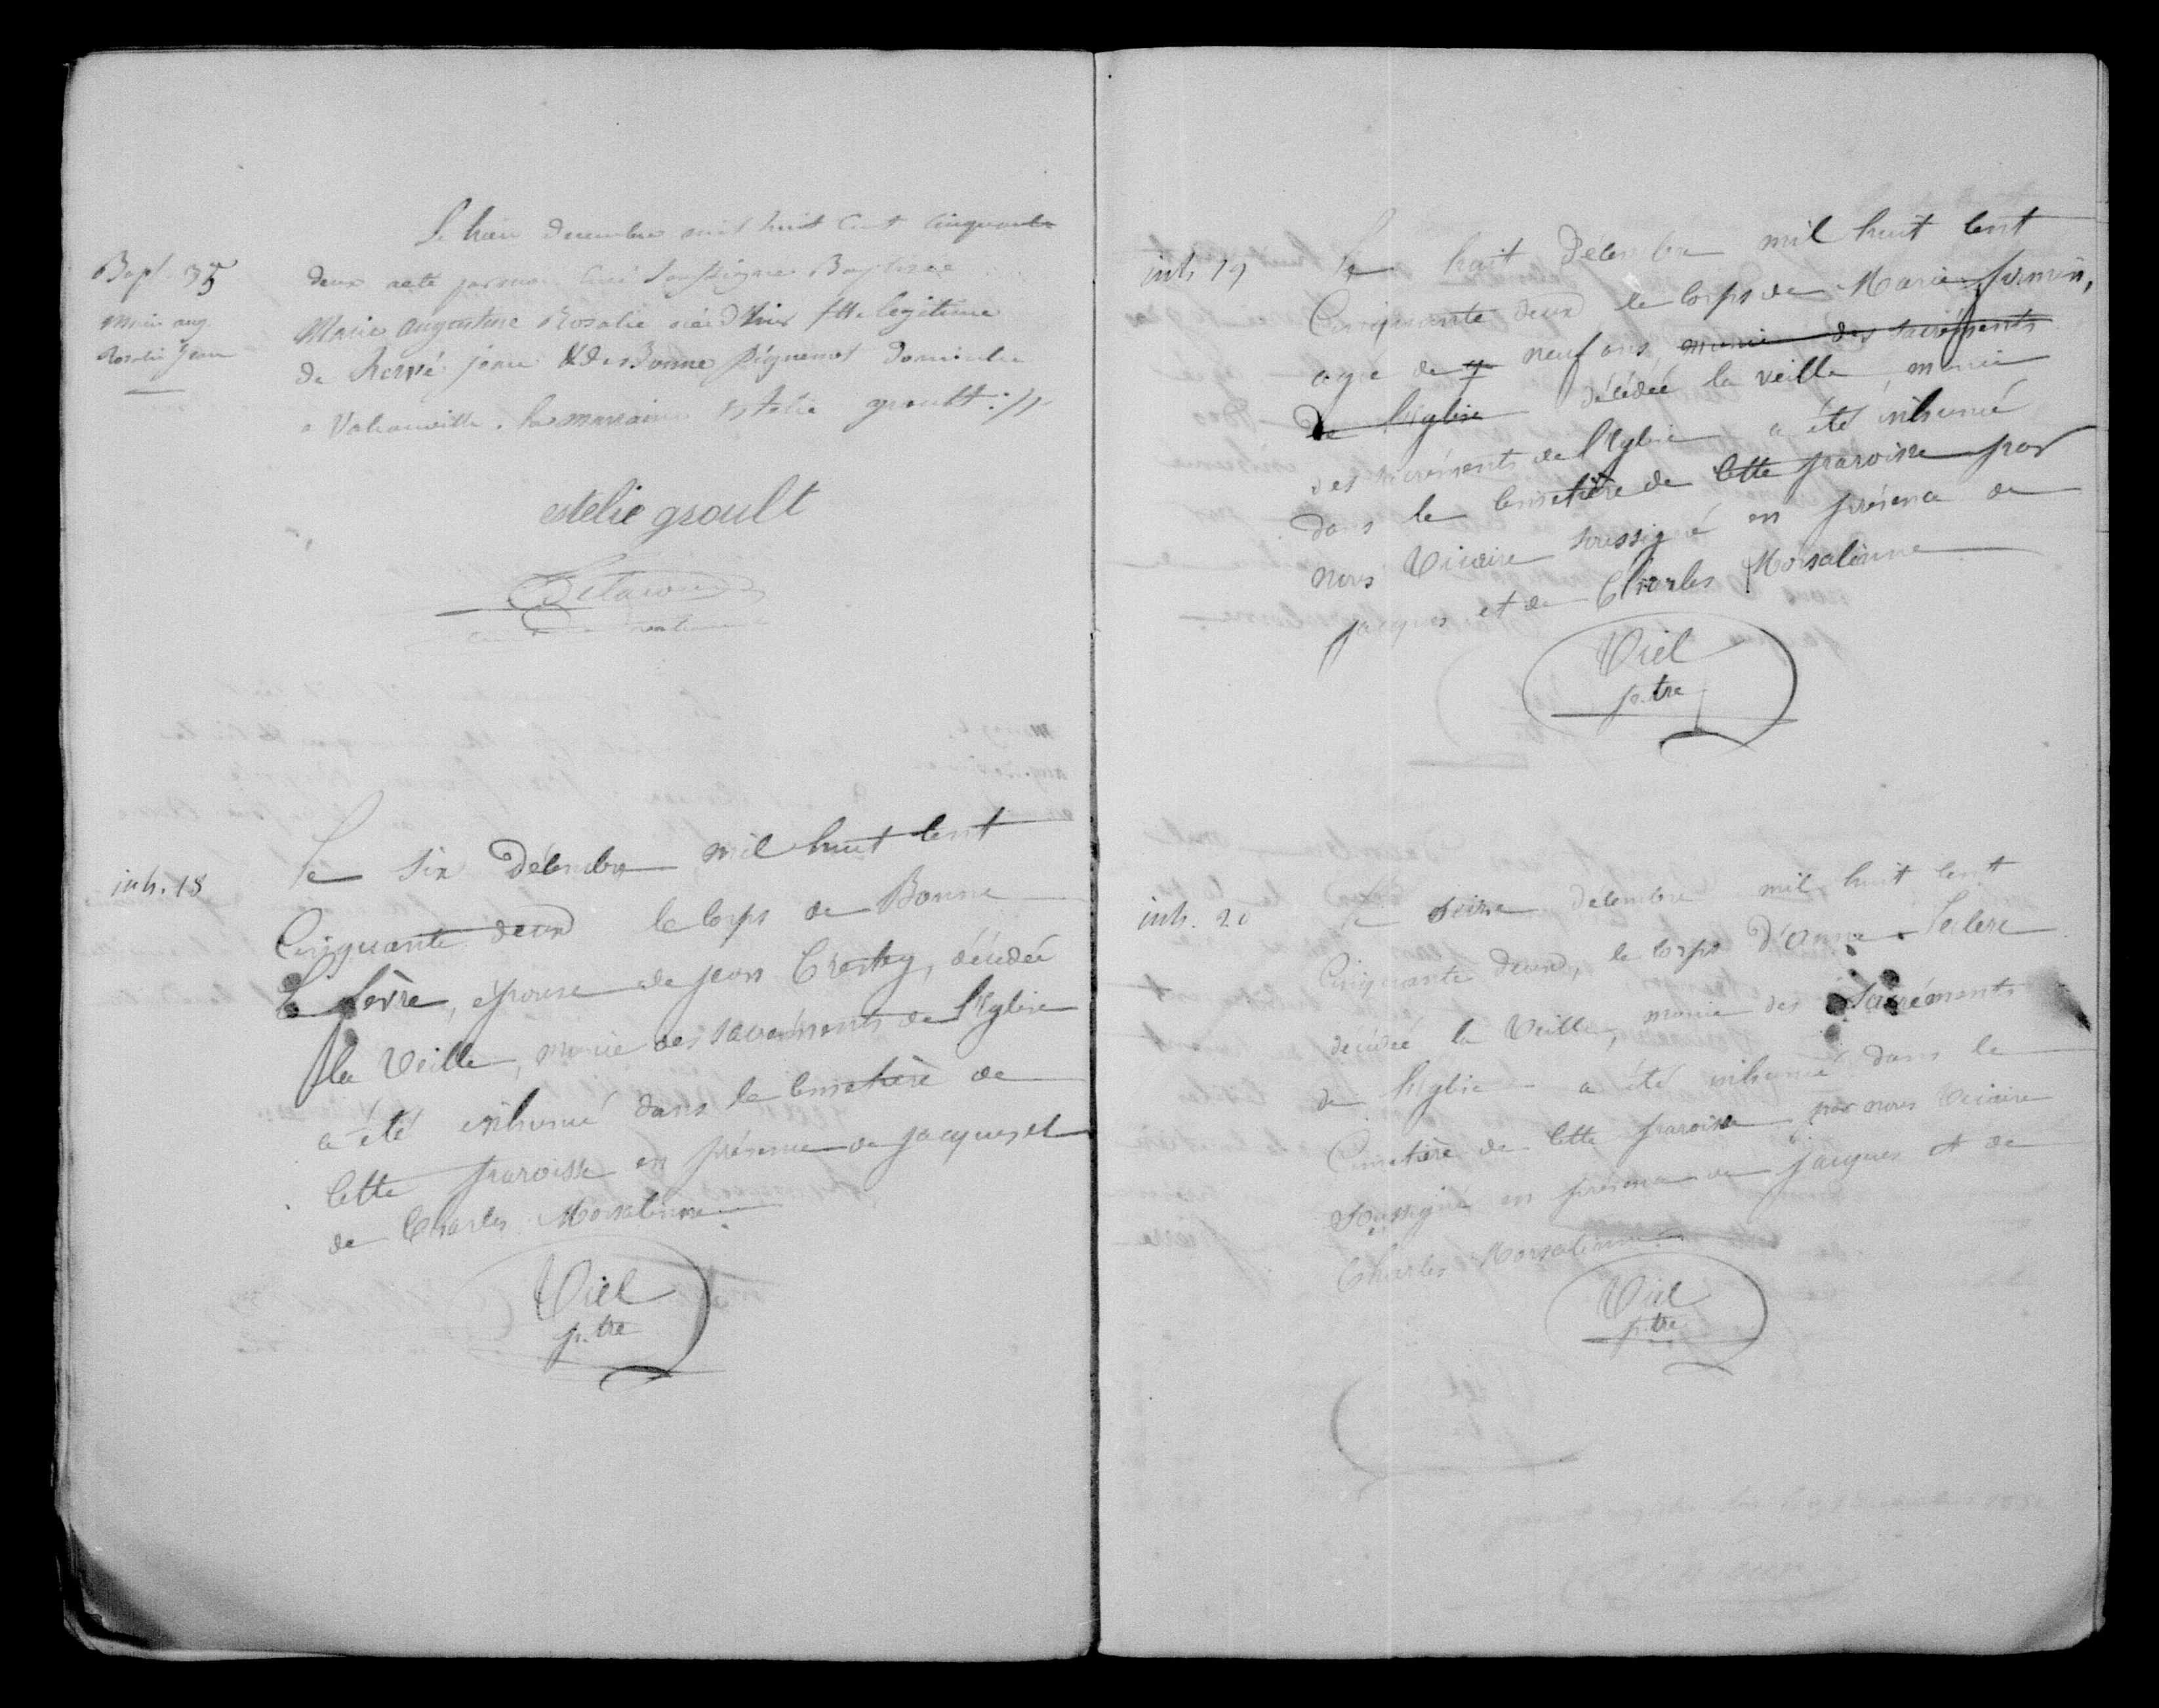 Bapt. 35
Marie aug.
Rosalie Jeanne
Le trois decembre mil huit Cent Cinquante
deux a eté par nous Curé Soussigné Baptisée
Marie augustine Rosalie née d'hier fille legitime
de hervé jeanne & de Bonne pignenot Domiciliés
a Valcanville. la marraine Estelie groult ://
estelie groult
inh. 18
Le Six Décembre mil huit Cent
Cinquante deux le Corps de Bonne
Le fevre, épouse de jean Crestey, décédée
la Veille, munie des sacréments de l'Eglise
a été inhumé dans le Cimetière de
Cette paroisse en présence de jacques et
de Charles Morsalinne
Viel
p.tre
inh 19
Le huit Décembre mil huit Cent
Cinquante deux le Corps de Marie firmin,
agée de neuf ans, munie des sacréments
de l'Eglise décédée la veille, munie
des sacréments de l'Eglise a été inhumé
dans le Cimetière de Cette paroisse par
nous Vicaire soussigné en présence de
jacques et de Charles Morsalinne
Viel
p.tre
inh. 20
Le seize décembre mil huit Cent
Cinquante deux, le Corps d'Anne Leclerc
décédée la Veille, munie des Sacréments
de l'Eglise a été inhumé dans le
Cimetière de Cette paroisse par nous Vicaire
Soussigné en présence de jacques et de
Charles Morsalinne
Viel
p.tre